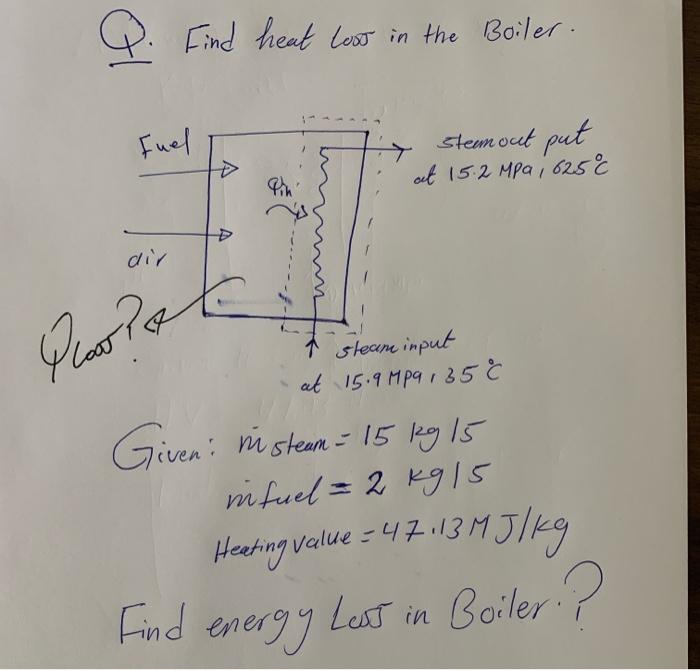 Q. Find heat loss in the Boiler.
Fuel
steam out put
at 15.2 MPa, 625°C
Qin
air
Qloss?
steam input
at 15.9 MPa, 35°C
Given: ṁ steam = 15 kg/s
ṁ fuel = 2 kg/s
Heating value = 47.13 MJ/kg
Find energy Loss in Boiler.?